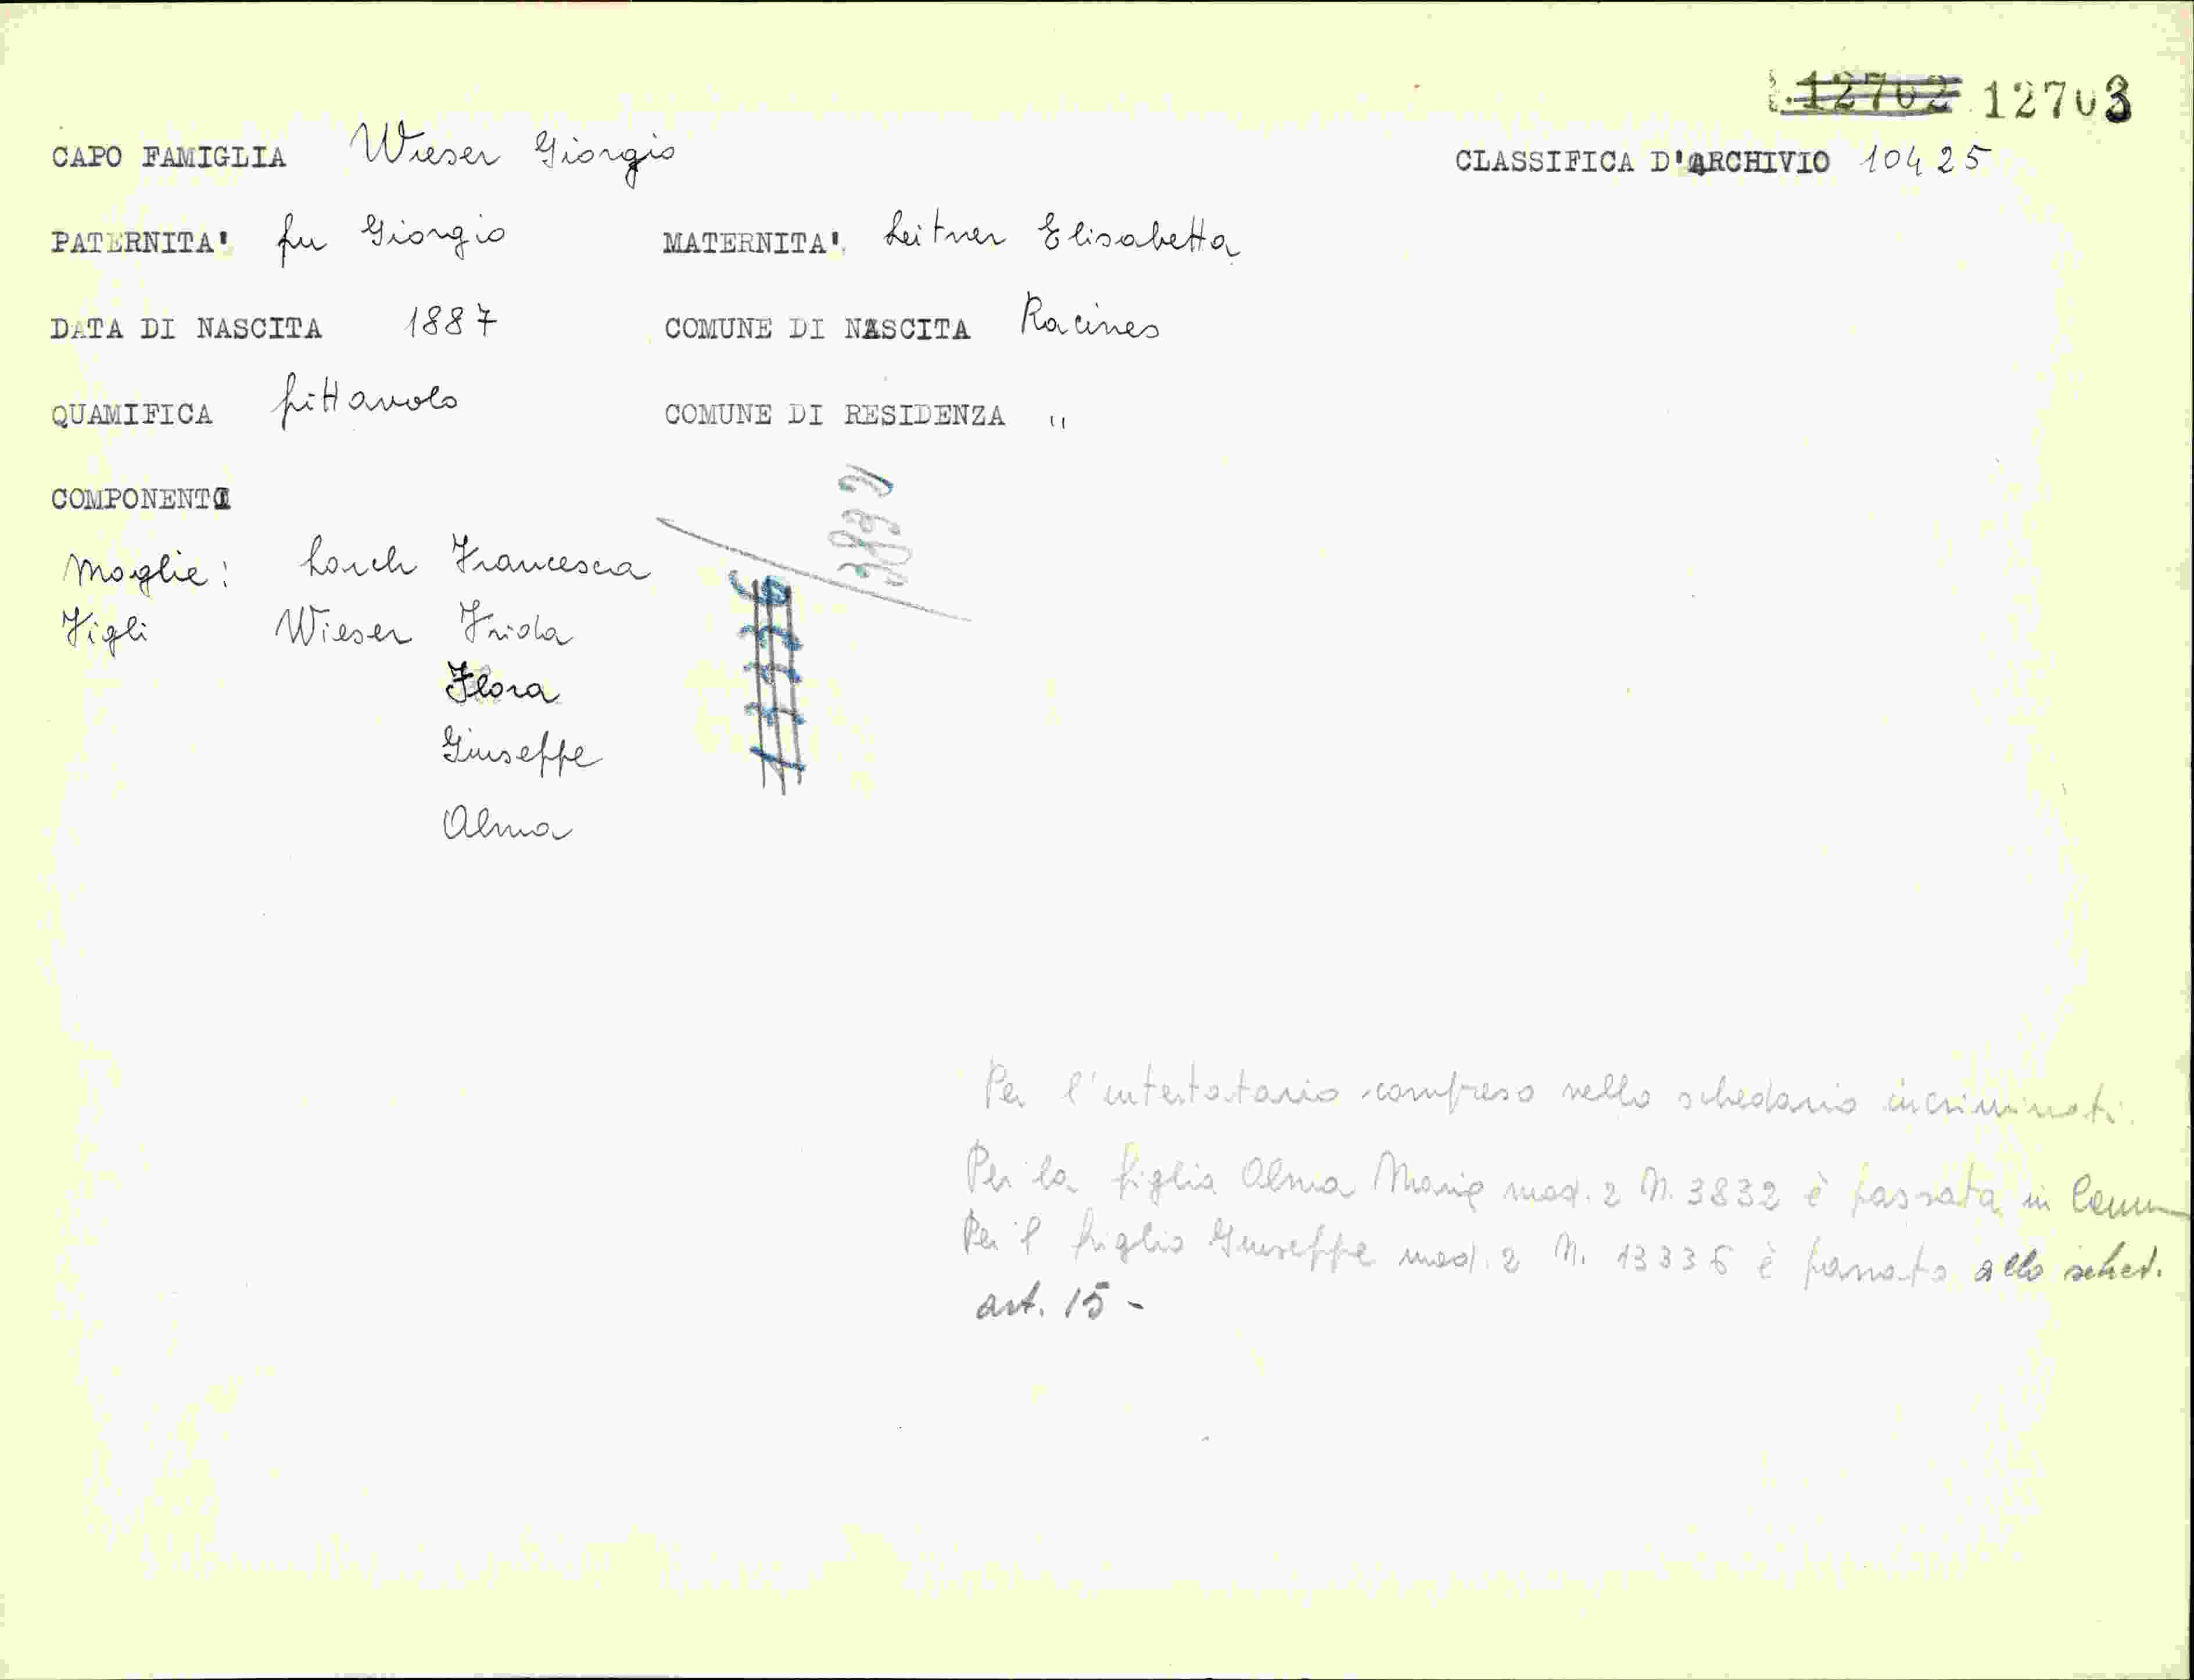 12702 12703
CAPO FAMIGLIA Wieser Giorgio CLASSIFICA D'ARCHIVIO 10425
PATERNITA' fu Giorgio MATERNITA' Leitner Elisabetta
DATA DI NASCITA 1887 COMUNE DI NASCITA Racines
QUAMIFICA fittavolo COMUNE DI RESIDENZA "
COMPONENTI
Moglie: Francesca
Figli Wieser Frida
Flora
Giuseppe
Alma
13336
Per l'intestatario compreso nello schedario incriminati.
Per la figlia Alma Maria mod. 2 N. 3832 è passata in
Per il figlio Giuseppe mod. 2 N. 13336 è passato allo sched.
art. 15 -